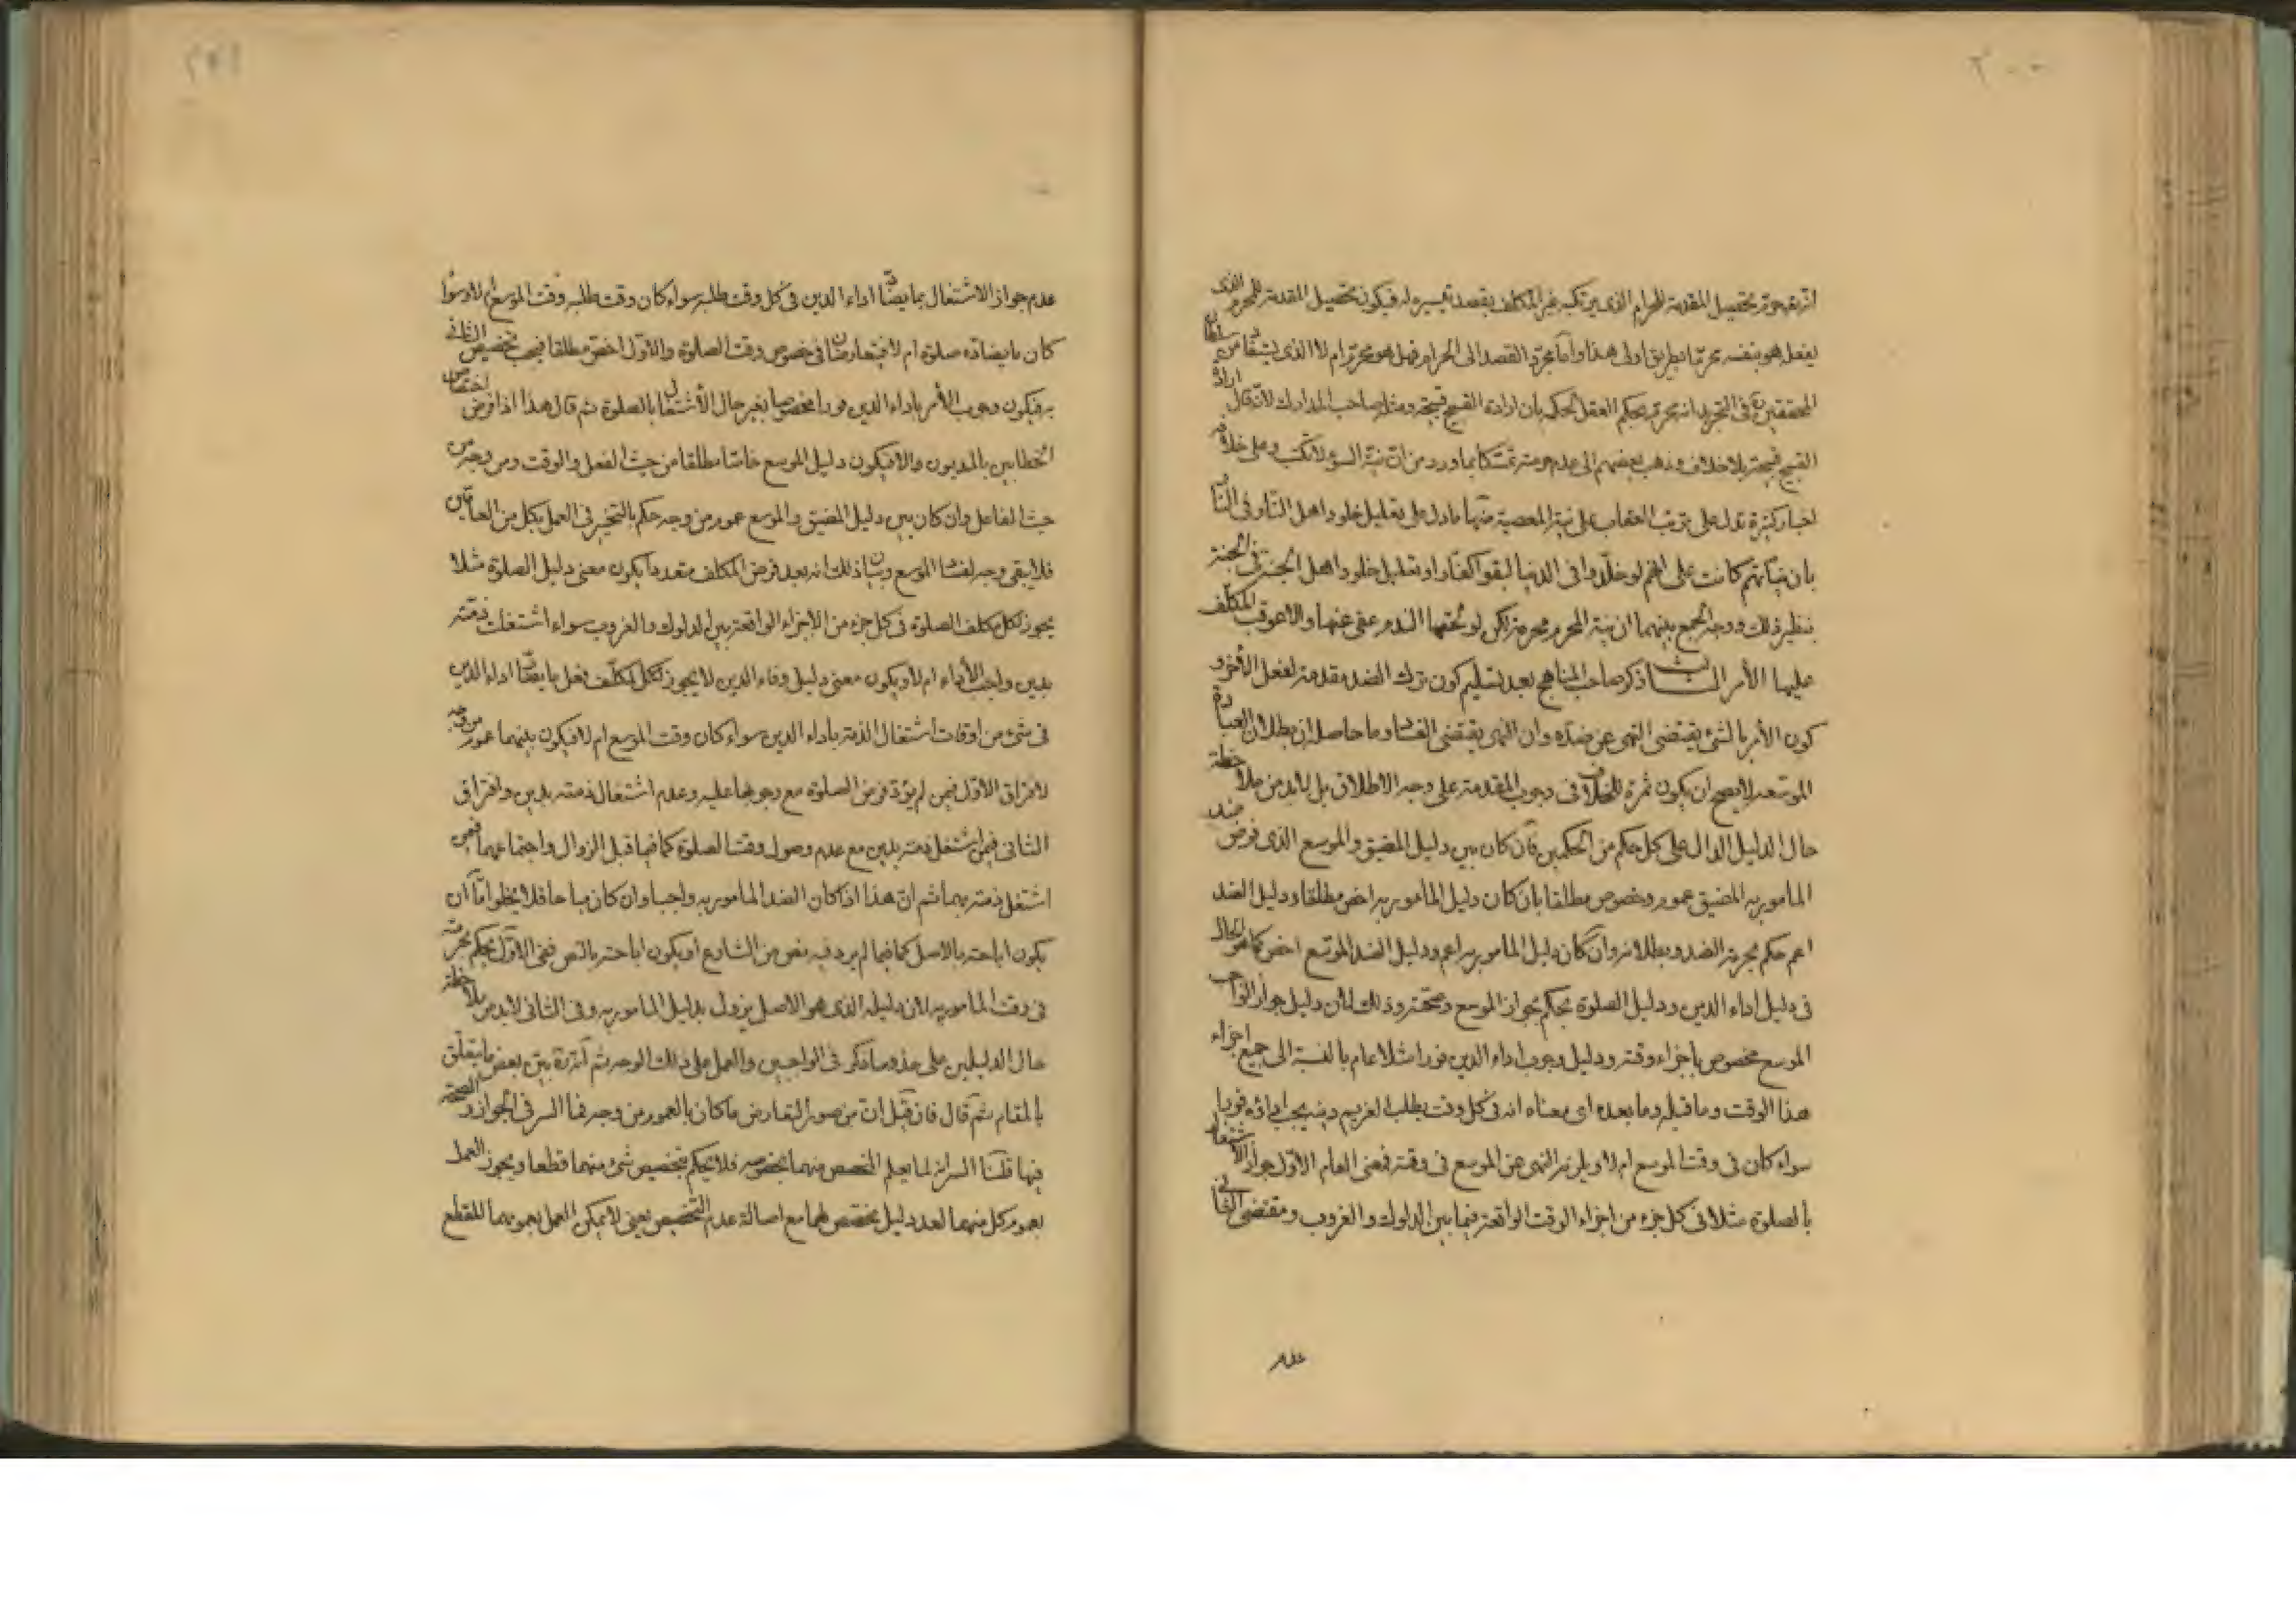 ٢٠٠
تحصيل المقدمة للحرام الذى يرتكبه غير المكلف بقصد تيسيره له فيكون تحصيل المقدمة للمحرم الذى
يفعل هو بنفسه محرما بطريق اولى هذا واما مجرد القصد الى الحرام فهل هو محرم ام لا الذى سلطان
المحققين فى التجريد انه محرم بحكم العقل لحكمه بان ارادة القبيح قبيحة ومثله صاحب المدارك لانه قال ارادة
القبيح قبيحة بلا خلاف وذهب بعضهم الى عدم حرمته تمسكا بما ورد من ان نية السوء لا تكتب وعلى خلافه
اخبار كثيرة تدل على ترتب العقاب على نية المعصية منها ما دل على تعليل خلود اهل النار فى النار
بان نياتهم كانت على انهم لو خلدوا فى الدنيا لبقوا كفارا وتعليل خلود اهل الجنة فى الجنة
بنظير ذلك ووجه الجمع بينهما ان نية المحرم محرمة لكن لو تحقها الندم عفى عنها والا عوقب المكلف
عليها الأمر الثالث ذكر صاحب المناهج بعد تسليم كون ترك الضد مقدمة لفعل الآخر و
كون الأمر بالشئ يقتضى النهى عن ضده وان النهى يقتضى الفساد وما حاصله ان بطلان العبادة
الموسعة لا يصح ان يكون ثمرة للخلاف فى وجوب المقدمة على وجه الاطلاق بل لا بد من ملاحظة
حال الدليل الدال على كل حكم من الحكمين فان كان بين دليل المضيق والموسع الذى فرض ضد
المأمور به المضيق عموم وخصوص مطلقا بان كان دليل المأمور به اخص مطلقا ودليل الضد
اعم حكم بحرمة الضد وبطلانه وان كان دليل المأمور به اعم ودليل الضد الموسع اخص كما هو الحال
فى دليل اداء الدين ودليل الصلوة بحكم بجواز الموسع وصحته وذلك لان دليل جواز الواجب
الموسع مخصوص باجزاء وقته ودليل وجوب اداء الدين فورا مثلا عام بالنسبة الى جميع اجزاء
هذا الوقت وما قبله وما بعده اى معناه انه فى كل وقت يطلب الغريم دينه يجب اداؤه فورا
سواء كان فى وقت الموسع ام لا ويلزمه النهى عن الموسع فى وقته فمعنى العام الاول جواز الاشتغال
بالصلوة مثلا فى كل جزء من اجزاء الوقت الواقعة فيما بين الدلوك والغروب ومقتضى الثانى
عدم
عدم جواز الاشتغال بما يضاد اداء الدين فى كل وقت طلبه سواء كان وقت طلبه وقت الموسع ام لا وسواء
كان ما يضاده صلوة ام لا فيتعارضان فى خصوص وقت الصلوة والاول اخص مطلقا فيجب تخصيص الثانى
به فيكون وجوب الأمر باداء الدين فورا مخصوصا بغير حال الاشتغال بالصلوة ثم قال هذا اذا فرض اختصاص
الخطابين بالمديون والا فيكون دليل الموسع خاصا مطلقا من حيث الفعل والوقت ومن وجه من
حيث الفاعل وان كان بين دليل المضيق والموسع عموم من وجه حكم بالتخيير فى العمل بكل من العامين
فلا يبقى وجه لفساد الموسع وبيان ذلك انه بعد فرض المكلف متعددا يكون معنى دليل الصلوة مثلا
يجوز لكل مكلف الصلوة فى كل جزء من الاجزاء الواقعة بين الدلوك والغروب سواء اشتغلت ذمته
بدين واجب الأداء ام لا ويكون معنى دليل وفاء الدين لا يجوز لكل مكلف فعل ما يضاد اداء الدين
فى شئ من اوقات اشتغال الذمة باداء الدين سواء كان وقت الموسع ام لا فيكون بينهما عموم من وجه
لافتراق الاول فيمن لم يؤد فرض الصلوة مع وجوبها عليه وعدم اشتغال ذمته بدين وافتراق
الثانى فيمن اشتغل ذمته بدين مع عدم وصول وقت الصلوة كما فيما قبل الزوال واجتماعهما فيمن
اشتغل ذمته بهما ثم ان هذا اذا كان الضد المأمور به واجبا وان كان مباحا فلا يخلو اما ان
يكون اباحته بالاصل كما فيما لم يرد فيه نص من الشارع او يكون اباحته بالنص ففى الاول يحكم بحرمته
فى وقت المأمور به لان دليله الذى هو الاصل يزول بدليل المأمور به وفى الثانى لا بد من ملاحظة
حال الدليلين على حذو ما ذكر فى الواجبين والعمل على ذلك الوجه ثم انه بين بعض ما يتعلق
بالمقام ثم قال فان قيل ان من صور التعارض ما كان بالعموم من وجه فما السر فى الجواز والصحة
فيها قلنا السر انه لما يعلم المخصص منهما بخصوصه فلا يحكم بتخصيص شئ منهما قطعا ويجوز العمل
بعموم كل منهما لعدم دليل يخصص لهما مع اصالة عدم التخصيص يعنى لا يمكن العمل بعمومهما للقطع